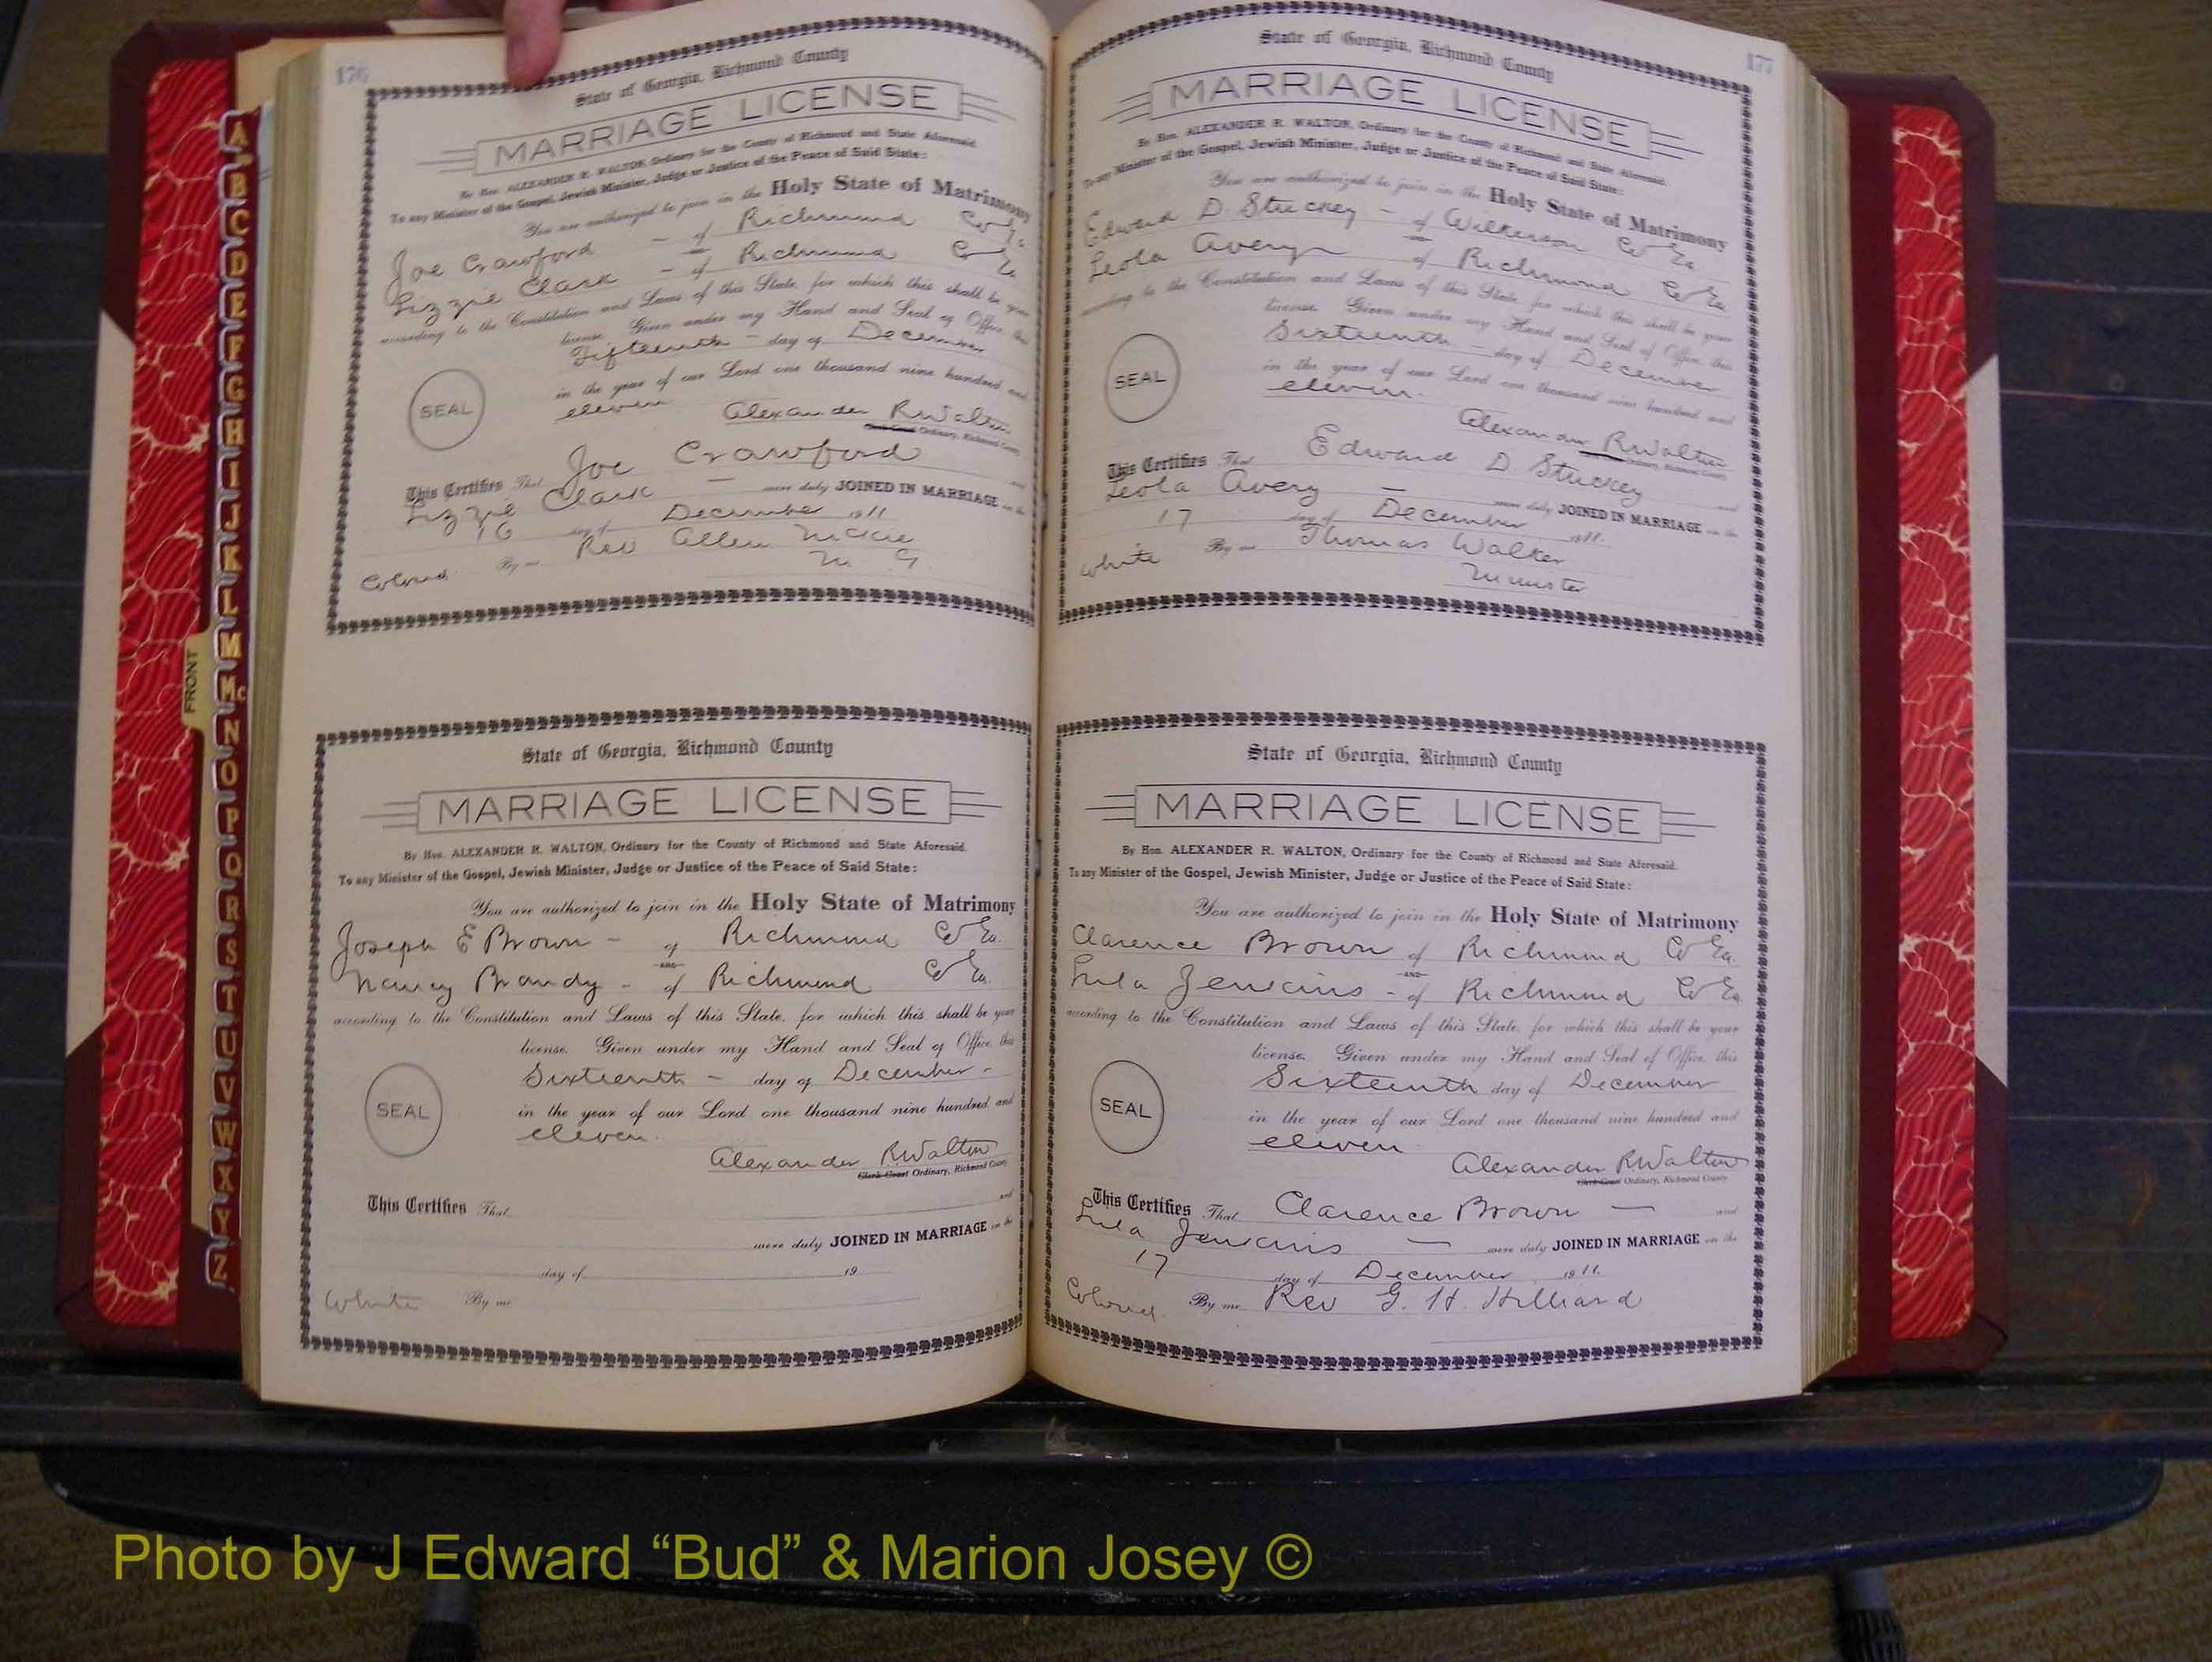 176
State of Georgia, Richmond County
MARRIAGE LICENSE
By Hon. ALEXANDER R. WALTON, Ordinary for the County of Richmond and State Aforesaid.
To any Minister of the Gospel, Jewish Minister, Judge or Justice of the Peace of Said State:
You are authorized to join in the Holy State of Matrimony
Joe Crawford - of Richmond Co Ga
AND
Lizzie Clark - of Richmond Co Ga
according to the Constitution and Laws of this State, for which this shall be your
license. Given under my Hand and Seal of Office, this
Fifteenth - day of December
in the year of our Lord one thousand nine hundred and
eleven
SEAL
Alexander R Walton
Clerk Court Ordinary, Richmond County
This Certifies That Joe Crawford and
Lizzie Clark - were duly JOINED IN MARRIAGE on the
16 day of December 1911
Colored By me Rev Allen
M. G.
State of Georgia, Richmond County
MARRIAGE LICENSE
By Hon. ALEXANDER R. WALTON, Ordinary for the County of Richmond and State Aforesaid.
To any Minister of the Gospel, Jewish Minister, Judge or Justice of the Peace of Said State:
You are authorized to join in the Holy State of Matrimony
Joseph E Brown - of Richmond Co Ga.
AND
Nancy Brandy - of Richmond Co Ga.
according to the Constitution and Laws of this State, for which this shall be your
license. Given under my Hand and Seal of Office, this
Sixteenth - day of December -
in the year of our Lord one thousand nine hundred and
eleven.
SEAL
Alexander R Walton
Clerk Court Ordinary, Richmond County
This Certifies That and
were duly JOINED IN MARRIAGE on the
day of 19
White By me
177
State of Georgia, Richmond County
MARRIAGE LICENSE
By Hon. ALEXANDER R. WALTON, Ordinary for the County of Richmond and State Aforesaid.
To any Minister of the Gospel, Jewish Minister, Judge or Justice of the Peace of Said State:
You are authorized to join in the Holy State of Matrimony
Edward D. Stuckey - of Wilkerson Co Ga
Leola Avery of Richmond Co Ga
according to the Constitution and Laws of this State, for which this shall be your
license. Given under my Hand and Seal of Office, this
Sixteenth - day of December
in the year of our Lord one thousand nine hundred and
eleven.
SEAL
Alexander R Walton
Ordinary, Richmond County
This Certifies That Edward D. Stuckey and
Leola Avery - were duly JOINED IN MARRIAGE on the
17 day of December 1911.
White By me Thomas Walker
Minister
State of Georgia, Richmond County
MARRIAGE LICENSE
By Hon. ALEXANDER R. WALTON, Ordinary for the County of Richmond and State Aforesaid.
To any Minister of the Gospel, Jewish Minister, Judge or Justice of the Peace of Said State:
You are authorized to join in the Holy State of Matrimony
Clarence Brown of Richmond Co Ga.
AND
Lula Jenkins - of Richmond Co Ga
according to the Constitution and Laws of this State, for which this shall be your
license. Given under my Hand and Seal of Office, this
Sixteenth day of December
in the year of our Lord one thousand nine hundred and
eleven
SEAL
Alexander R Walton
Clerk Court Ordinary, Richmond County
This Certifies That Clarence Brown - and
Lula Jenkins - were duly JOINED IN MARRIAGE on the
17 day of December 1911.
Colored. By me Rev G. H. Hilliard
FRONT
A
B
C
D
E
F
G
H
I
J
K
L
M
Mc
N
O
P
Q
R
S
T
U
V
W
X
Y
Z
Photo by J Edward “Bud” & Marion Josey ©